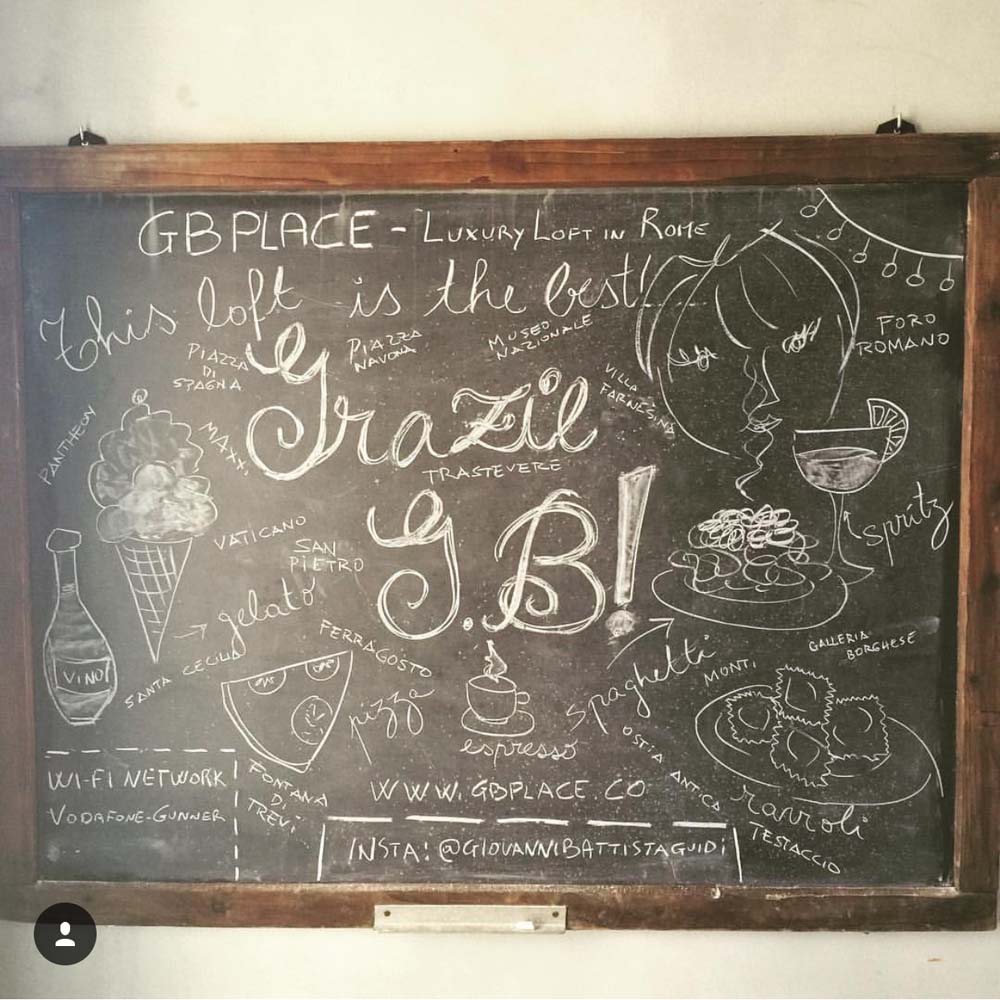 GB PLACE - LUXURY LOFT IN ROME
This loft is the best!
PIAZZA
DI
SPAGNA
PIAZZA
NAVONA
MUSEO
NAZIONALE
FORO
ROMANO
VILLA
FARNESINA
Grazie
PANTHEON
MAXXI
TRASTEVERE
G.B!
VATICANO
SAN
PIETRO
spritz
gelato
VINO
SANTA CECILIA
FERRAGOSTO
pizza
espresso
spaghetti
MONTI
GALLERIA
BORGHESE
OSTIA ANTICA
ravioli
TESTACCIO
FONTANA
DI
TREVI
WI-FI NETWORK
VODAFONE-GUNNER
WWW.GBPLACE.CO
INSTA! @GIOVANNIBATTISTAGUIDI